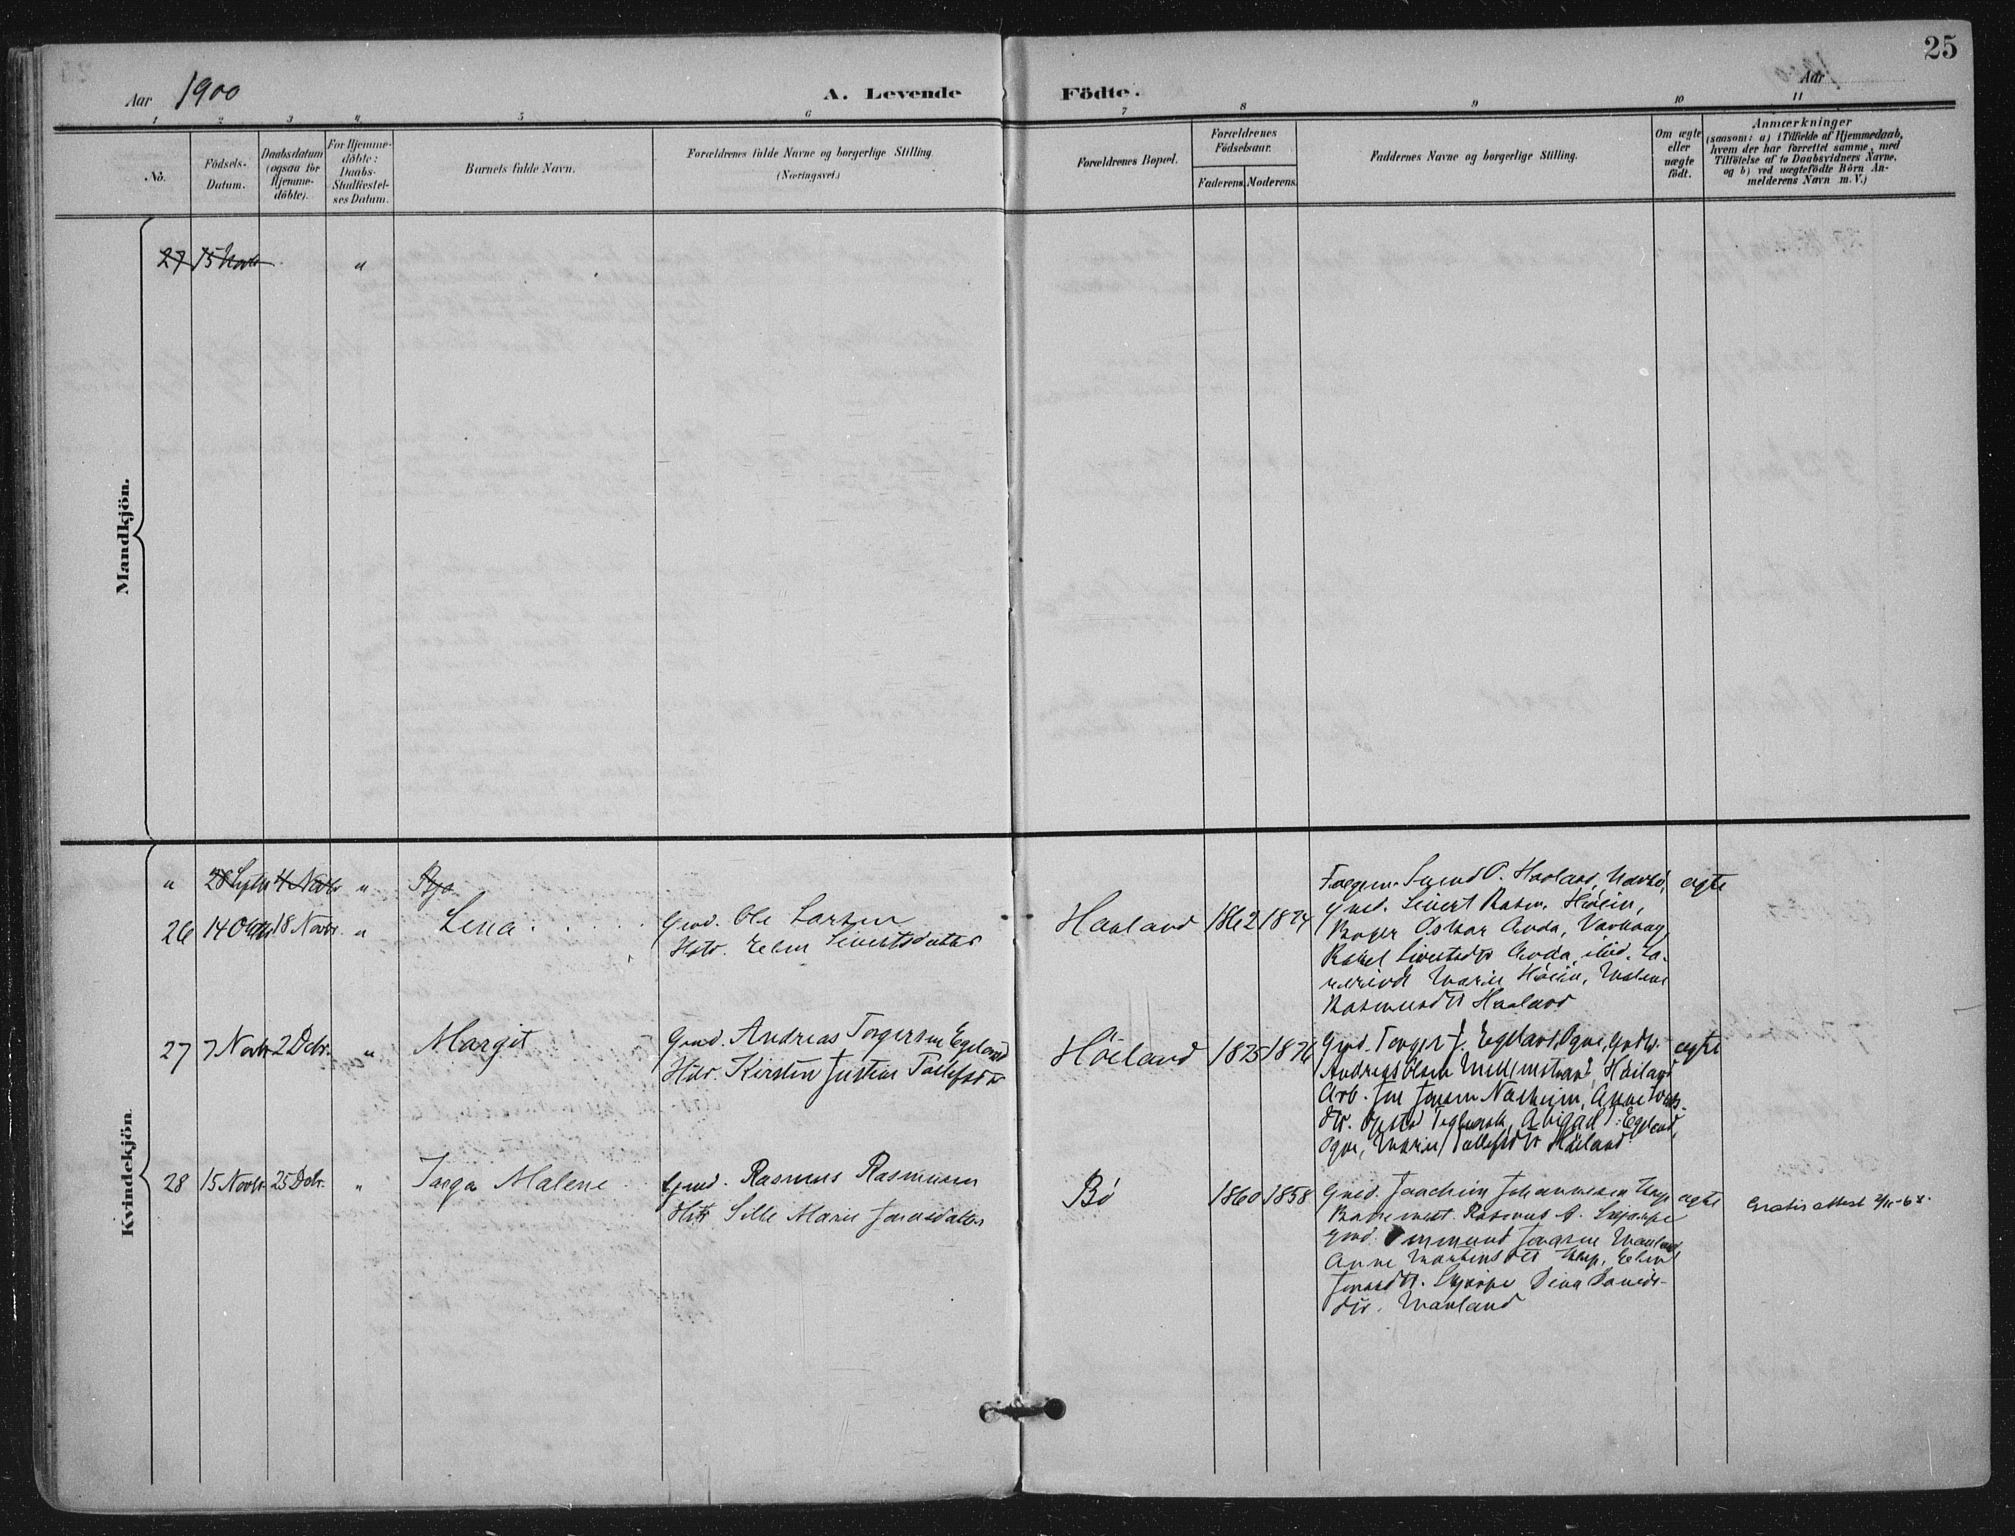 25
Aar 1900
A. Levende Födte.
Aar
1 2 3 4 5 6 7 8 9 10 11
No.
Födsels-
Datum.
Daabsdatum
(ogsaa for
Hjemme-
döbte).
For Hjemme-
döbte:
Daabs-
Stadfæstel-
ses Datum.
Barnets fulde Navn.
Forældrenes fulde Navne og borgerlige Stilling
(Næringsvei.)
Forældrenes Bopæl.
Forældrenes
Födselsaar.
Faderens. Moderens.
Faddernes Navne og borgerlige Stilling.
Om ægte
eller
uægte
födt.
Anmærkninger
(saasom: a) i Tilfælde af Hjemmedaab,
hvem der har forrettet samme, med
Tilföielse af to Daabsvidners Navne,
og b) ved uægtefödte Börn An-
melderens Navn m. V.)
Mandkjön.
27 15 Novbr "
Kvindekjön
" 28 Septbr 4 Novbr "
26 14 Octbr 18 Novbr. "
Lena
Gmd. Ole Larsen
Hstr. Elen Sivertsdatter
Haaland
1862 1874
Svend O. Haaland,
Gmd. Sivert Rasm. Høien,
Oskar Auda, Varhoug,
Rakel Sivertsdtr Auda, ibid.
Marie Høien, Malene
Rasmusdtr Haaland
ægte
27 7 Novbr 2 Decbr. "
Margit
Gmd. Andreas Torgersen Egeland
Hstr. Kirsten Justine Tollefsdtr
Höiland
1875 1876
Gmd. Torger J. Egeland, Ogne, Gmd.
Andreas Olsen Mellemstrand, Höiland
Arb. Jon Jonsen Næsheim, Anne
dtr. Opstad Teglverk, Abigael T. Egeland,
Ogne, Marie Tollefsdtr Höiland
ægte
28 15 Novbr. 25 Decbr. "
Inga Malene
Gmd. Rasmus Rasmusen
Hstr Sille Marie Jonasdatter
Bø
1860 1858
Gmd. Joachim Johannesen
Rasmus A.
Gmd. Ommund Jonasen Mauland
Anne Martinsdtr Elen
Jonasdtr. Dina Daniels-
dtr. Mauland
ægte
Gratis attest 2/11-68.